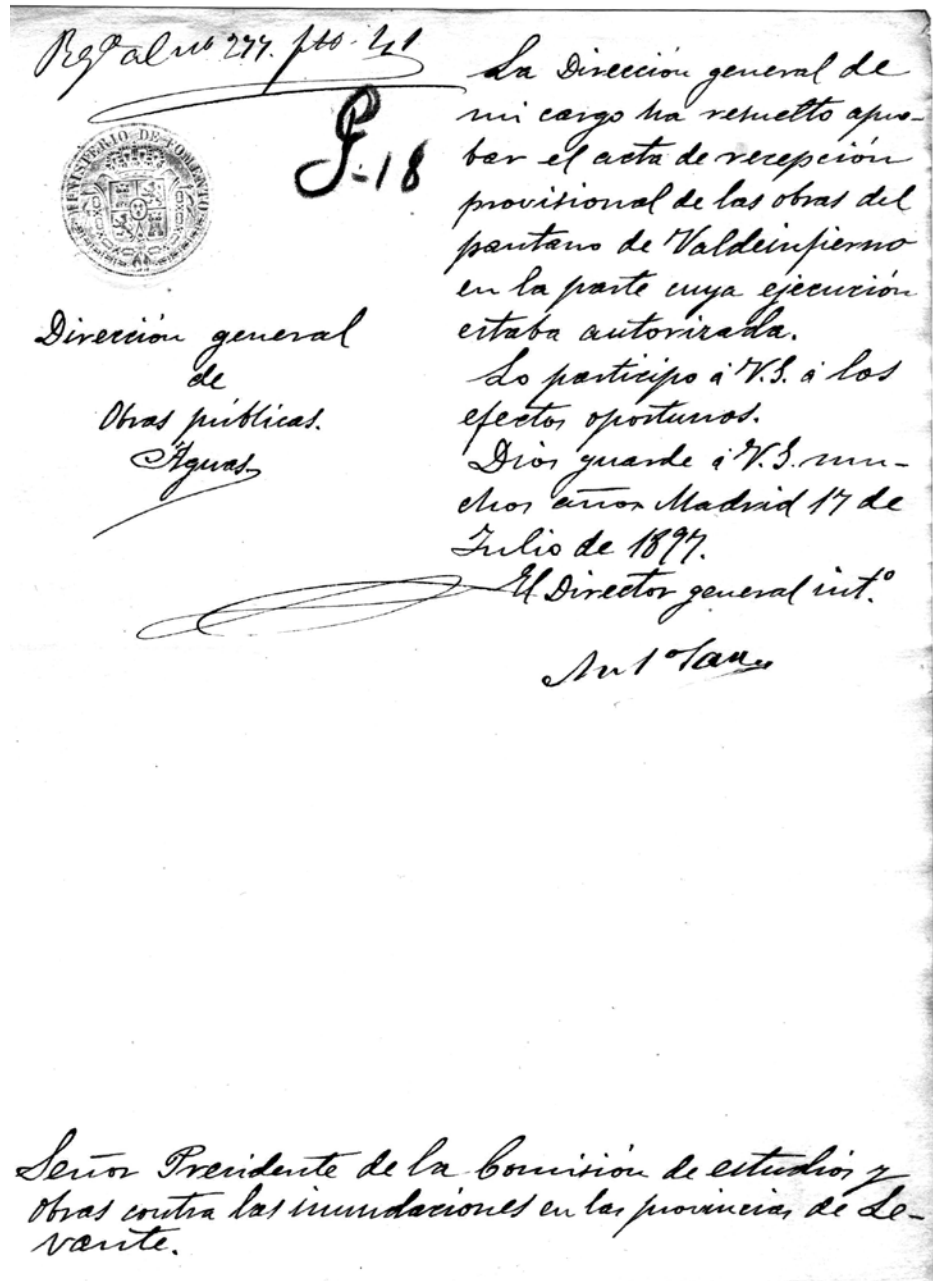 Regdo al nº 277. fto. 41
P-18
MINISTERIO DE FOMENTO
Dirección general
de
Obras públicas.
Aguas
La Dirección general de
mi cargo ha resuelto apro-
bar el acta de recepción
provisional de las obras del
pantano de Valdeinfierno
en la parte cuya ejecución
estaba autorizada.
Lo participo á V.S. á los
efectos oportunos.
Dios guarde á V.S. mu-
chos años Madrid 17 de
Julio de 1897.
El Director general int.º
Señor Presidente de la Comisión de estudios y
obras contra las inundaciones en las provincias de Le-
vante.